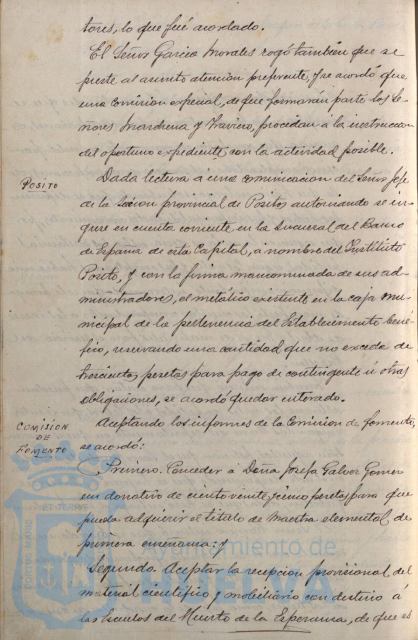 tores, lo que fué acordado.
El Señor Garcia Morales rogó tambien que se
preste al asunto atención preferente, y se acordó que
una Comision especial, de que formarán parte los Se-
ñores Marchena y Traviero, procedan á la instruccion
del oportuno expediente, con la actividad posible.
POSITO
Dada lectura á una comunicacion del Señor Jefe
de la Seccion provincial de Positos autorizando se in-
grese en cuenta corriente en la Sucursal del Banco
de España de esta Capital, á nombre del Instituto
Posito, y con la firma mancomunada de sus ad-
ministradores, el metálico existente en la caja mu-
nicipal de la pertenencia del Establecimiento bené-
fico, reservando una cantidad que no exceda de
trescientas pesetas para pago de contingente u otras
obligaciones, se acordó quedar enterado.
COMISION
DE
FOMENTO
Aceptando los informes de la Comision de Fomento,
se acordó:
Primero. Conceder á Doña Josefa Galvez Gomez
un donativo de ciento veinte y cinco pesetas para que
pueda adquirir el titulo de Maestra elemental de
primera enseñanza: y
Segundo. Aceptar la recepcion provisional del
material cientifico y mobiliario con destino á
las Escuelas del Huerto de la Esperanza, de que es
Ayuntamiento de
HUELVA